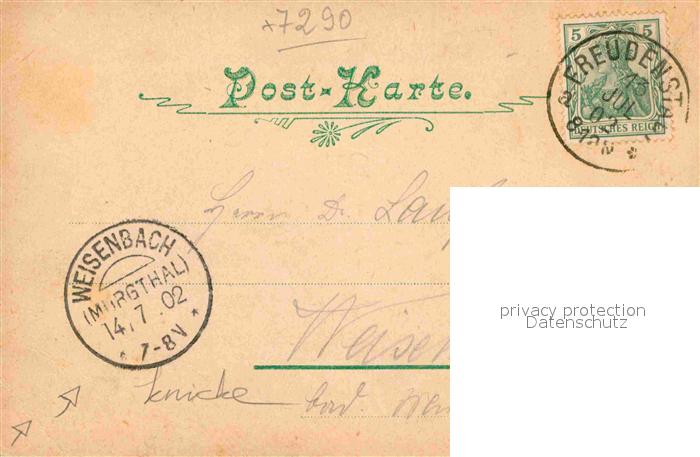 *7290
5 5
DEUTSCHES REICH
FREUDENSTADT
13
JUL
02
8-9 N
Post-Karte.
Herrn Dr.
WEISENBACH
(MURGTHAL)
14.7.02
7-8V
privacy protection
Datenschutz
Weisen
knicke
bad.